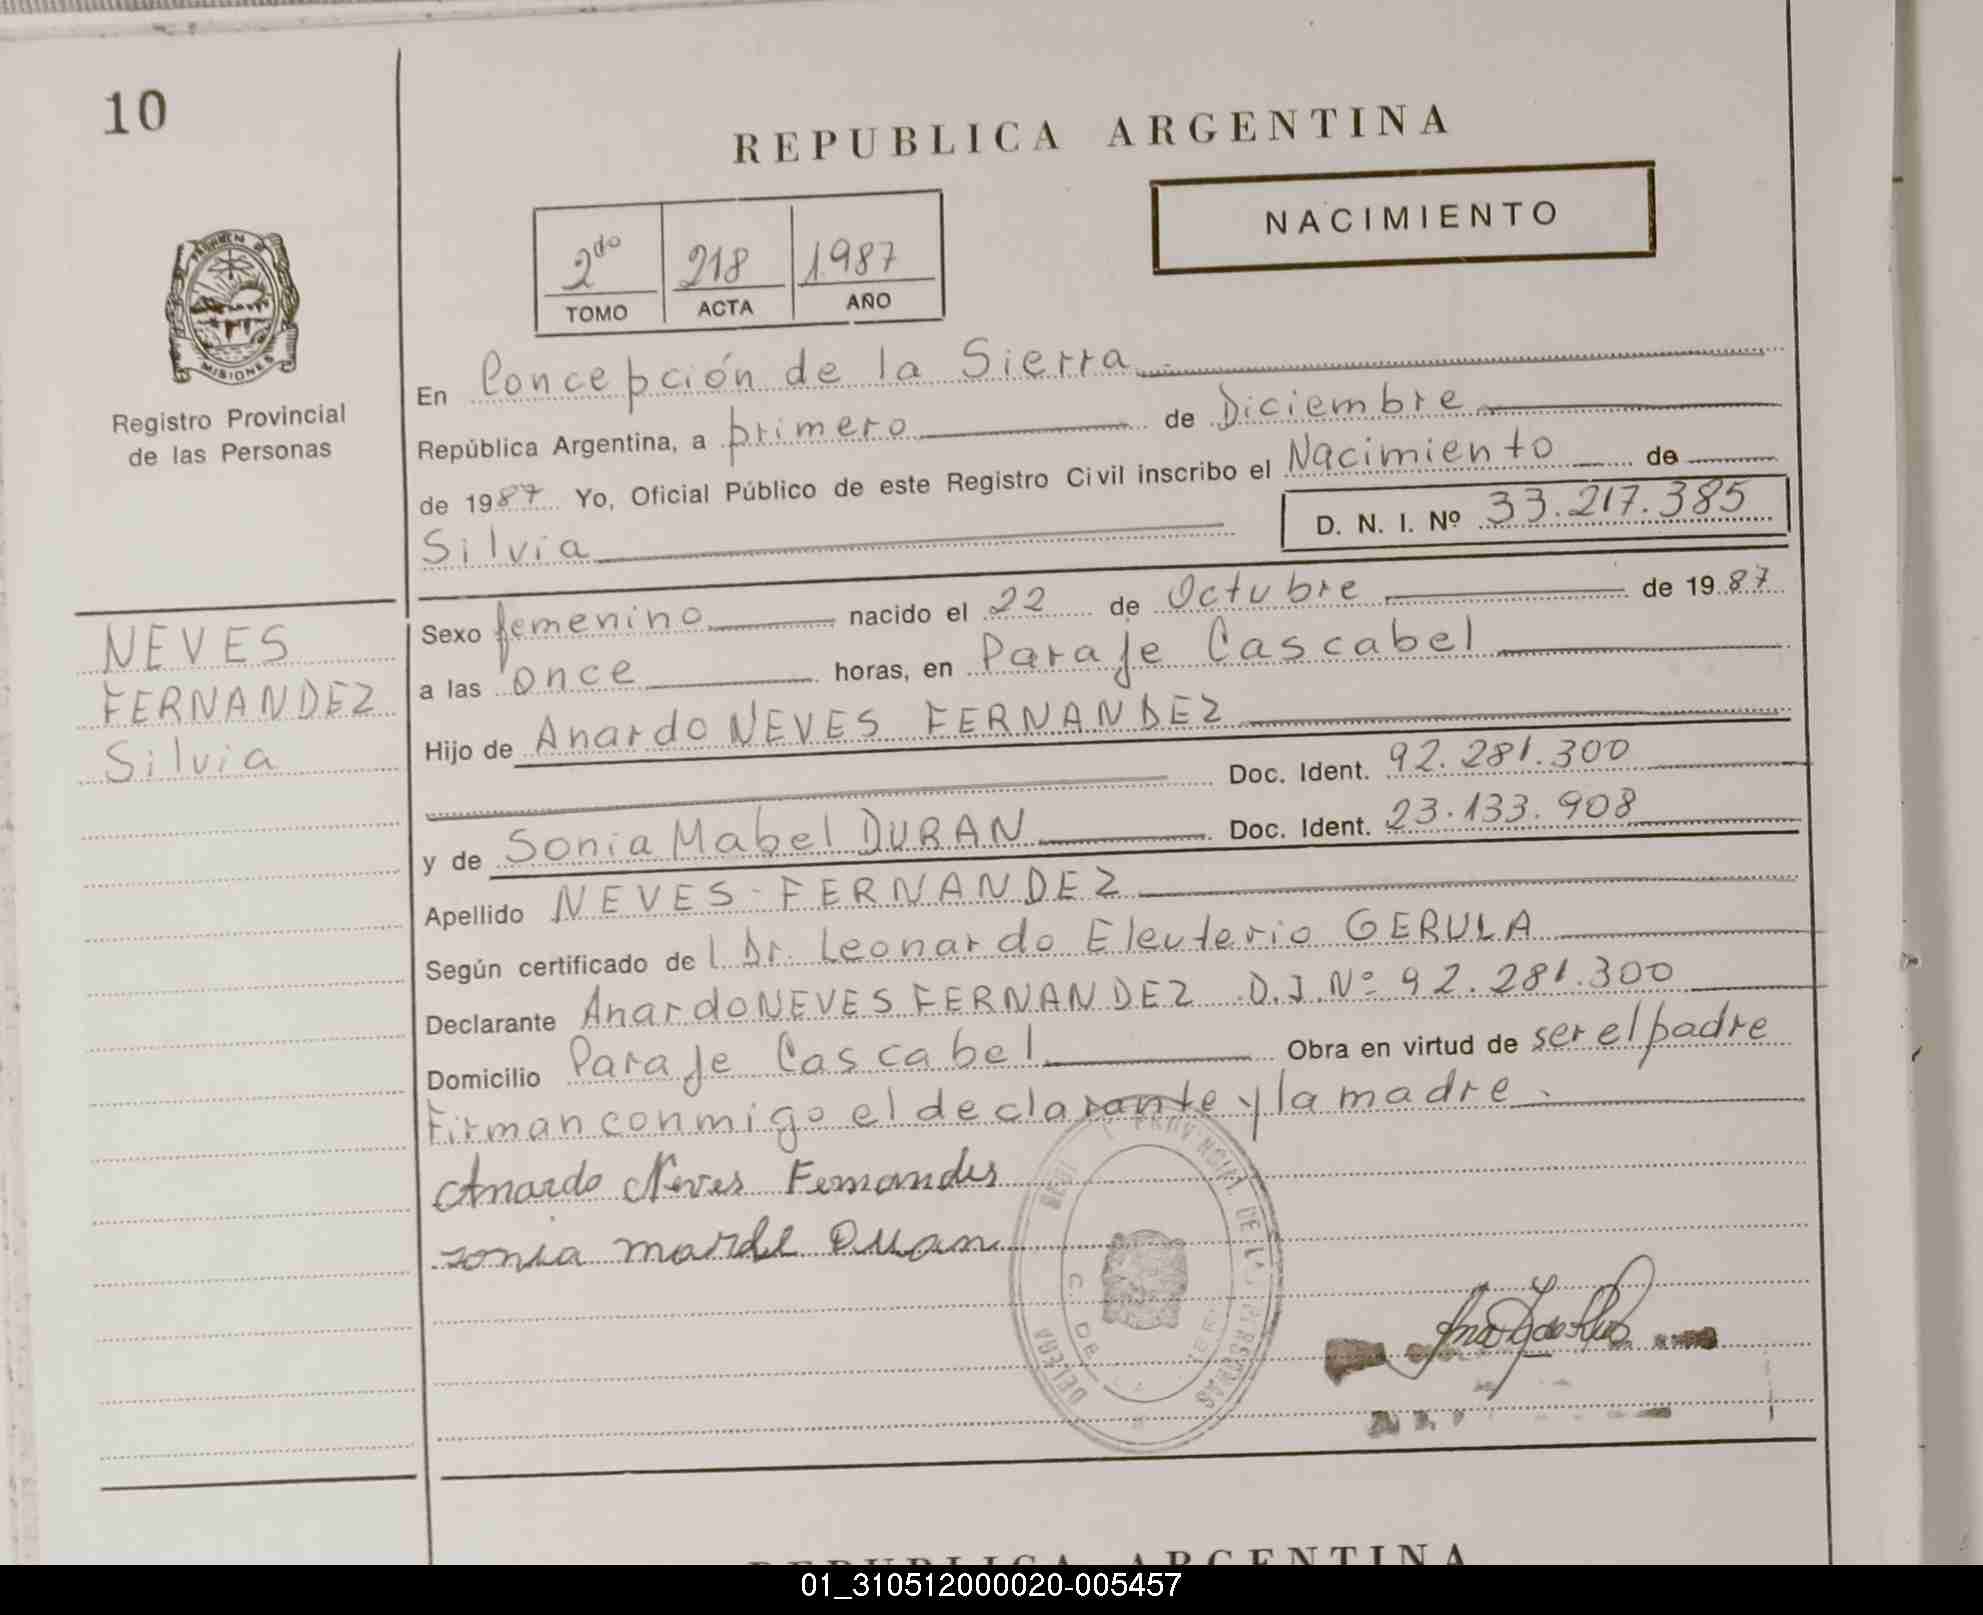 10
REPUBLICA ARGENTINA
NACIMIENTO
2do 218 1987
TOMO ACTA AÑO
MISIONES
Registro Provincial
de las Personas
En Concepción de la Sierra
República Argentina, a primero de Diciembre
de 1987 Yo, Oficial Público de este Registro Civil inscribo el Nacimiento de
Silvia D. N. I. Nº 33.217.385
NEVES
FERNANDEZ
Silvia
Sexo femenino nacido el 22 de Octubre de 1987
a las once horas, en Paraje Cascabel
Hijo de Anardo NEVES FERNANDEZ
Doc. Ident. 92.281.300
y de Sonia Mabel DURAN Doc. Ident. 23.133.908
Apellido NEVES-FERNANDEZ
Según certificado de l Dr. Leonardo Eleuterio GERULA
Declarante Anardo NEVES FERNANDEZ D.I.Nº 92.281.300
Domicilio Paraje Cascabel Obra en virtud de ser el padre
Firman conmigo el declarante y la madre.
Anardo Neves Fernandes
REPUBLICA ARGENTINA
01_310512000020-005457